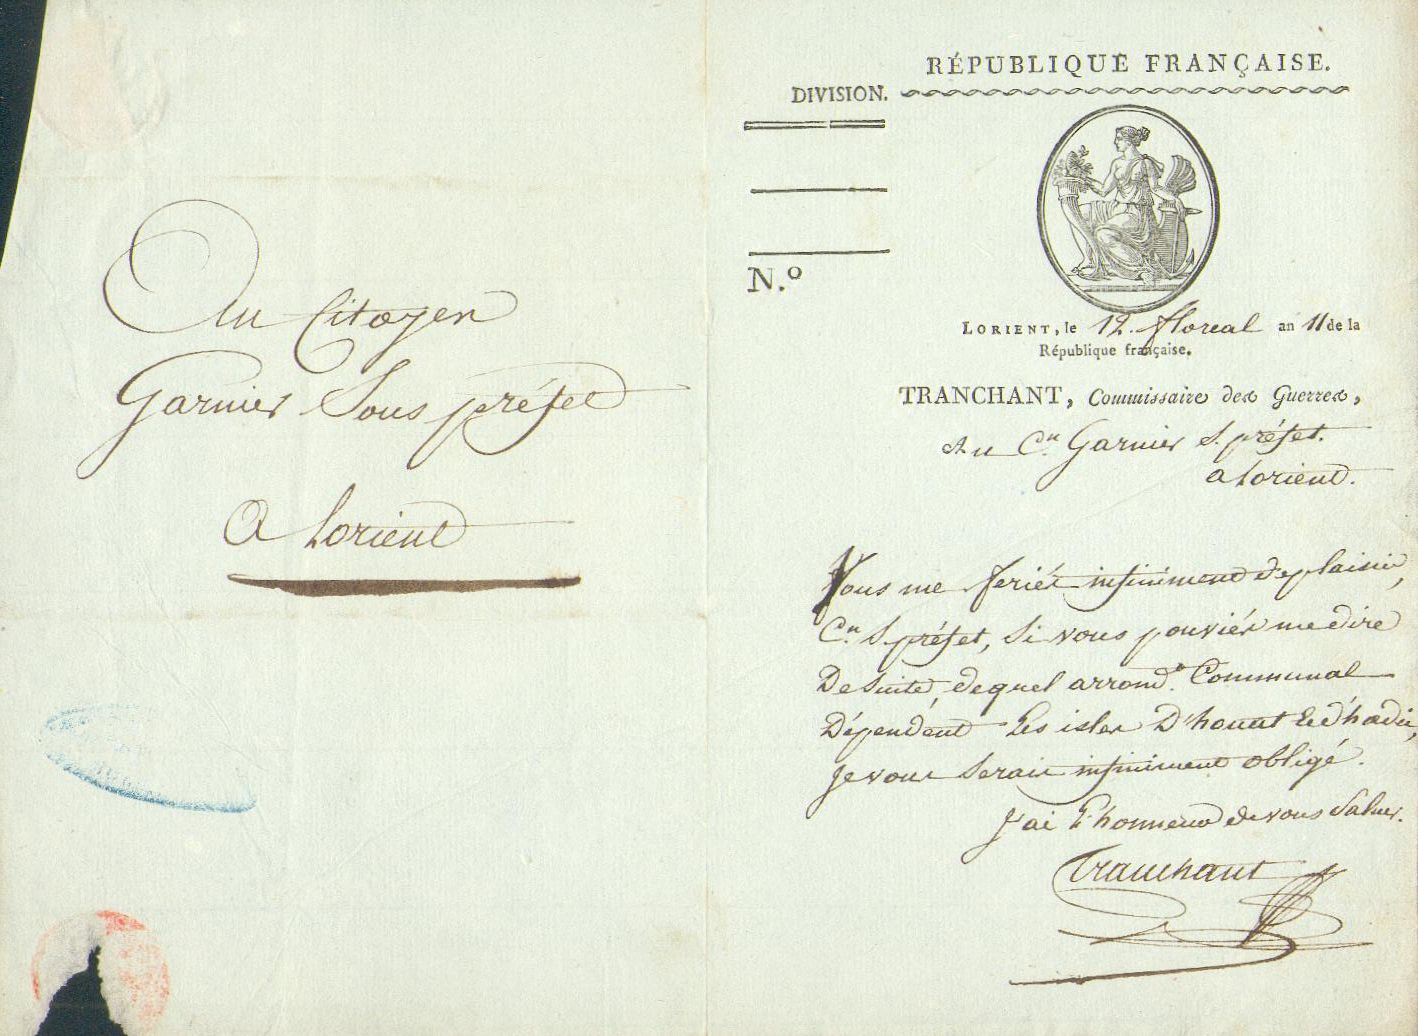 Au Citoyen
Garnier Sous préfet
A Lorient
RÉPUBLIQUE FRANÇAISE.
DIVISION.
N.º
LORIENT, le 12. floreal an 11 de la
République française.
TRANCHANT, Commissaire des Guerres,
Au C.en Garnier S. préfet.
a Lorient.
Vous me feriés infiniment de plaisir,
C.en S. préfet, Si vous pouviés me dire
De Suite, de quel arrond.t Communal
Dépendent Les isles D'houat Et d'hœdic,
Je vous Serais infiniment obligé.
J'ai L'honneur de vous Saluer.
Tranchant